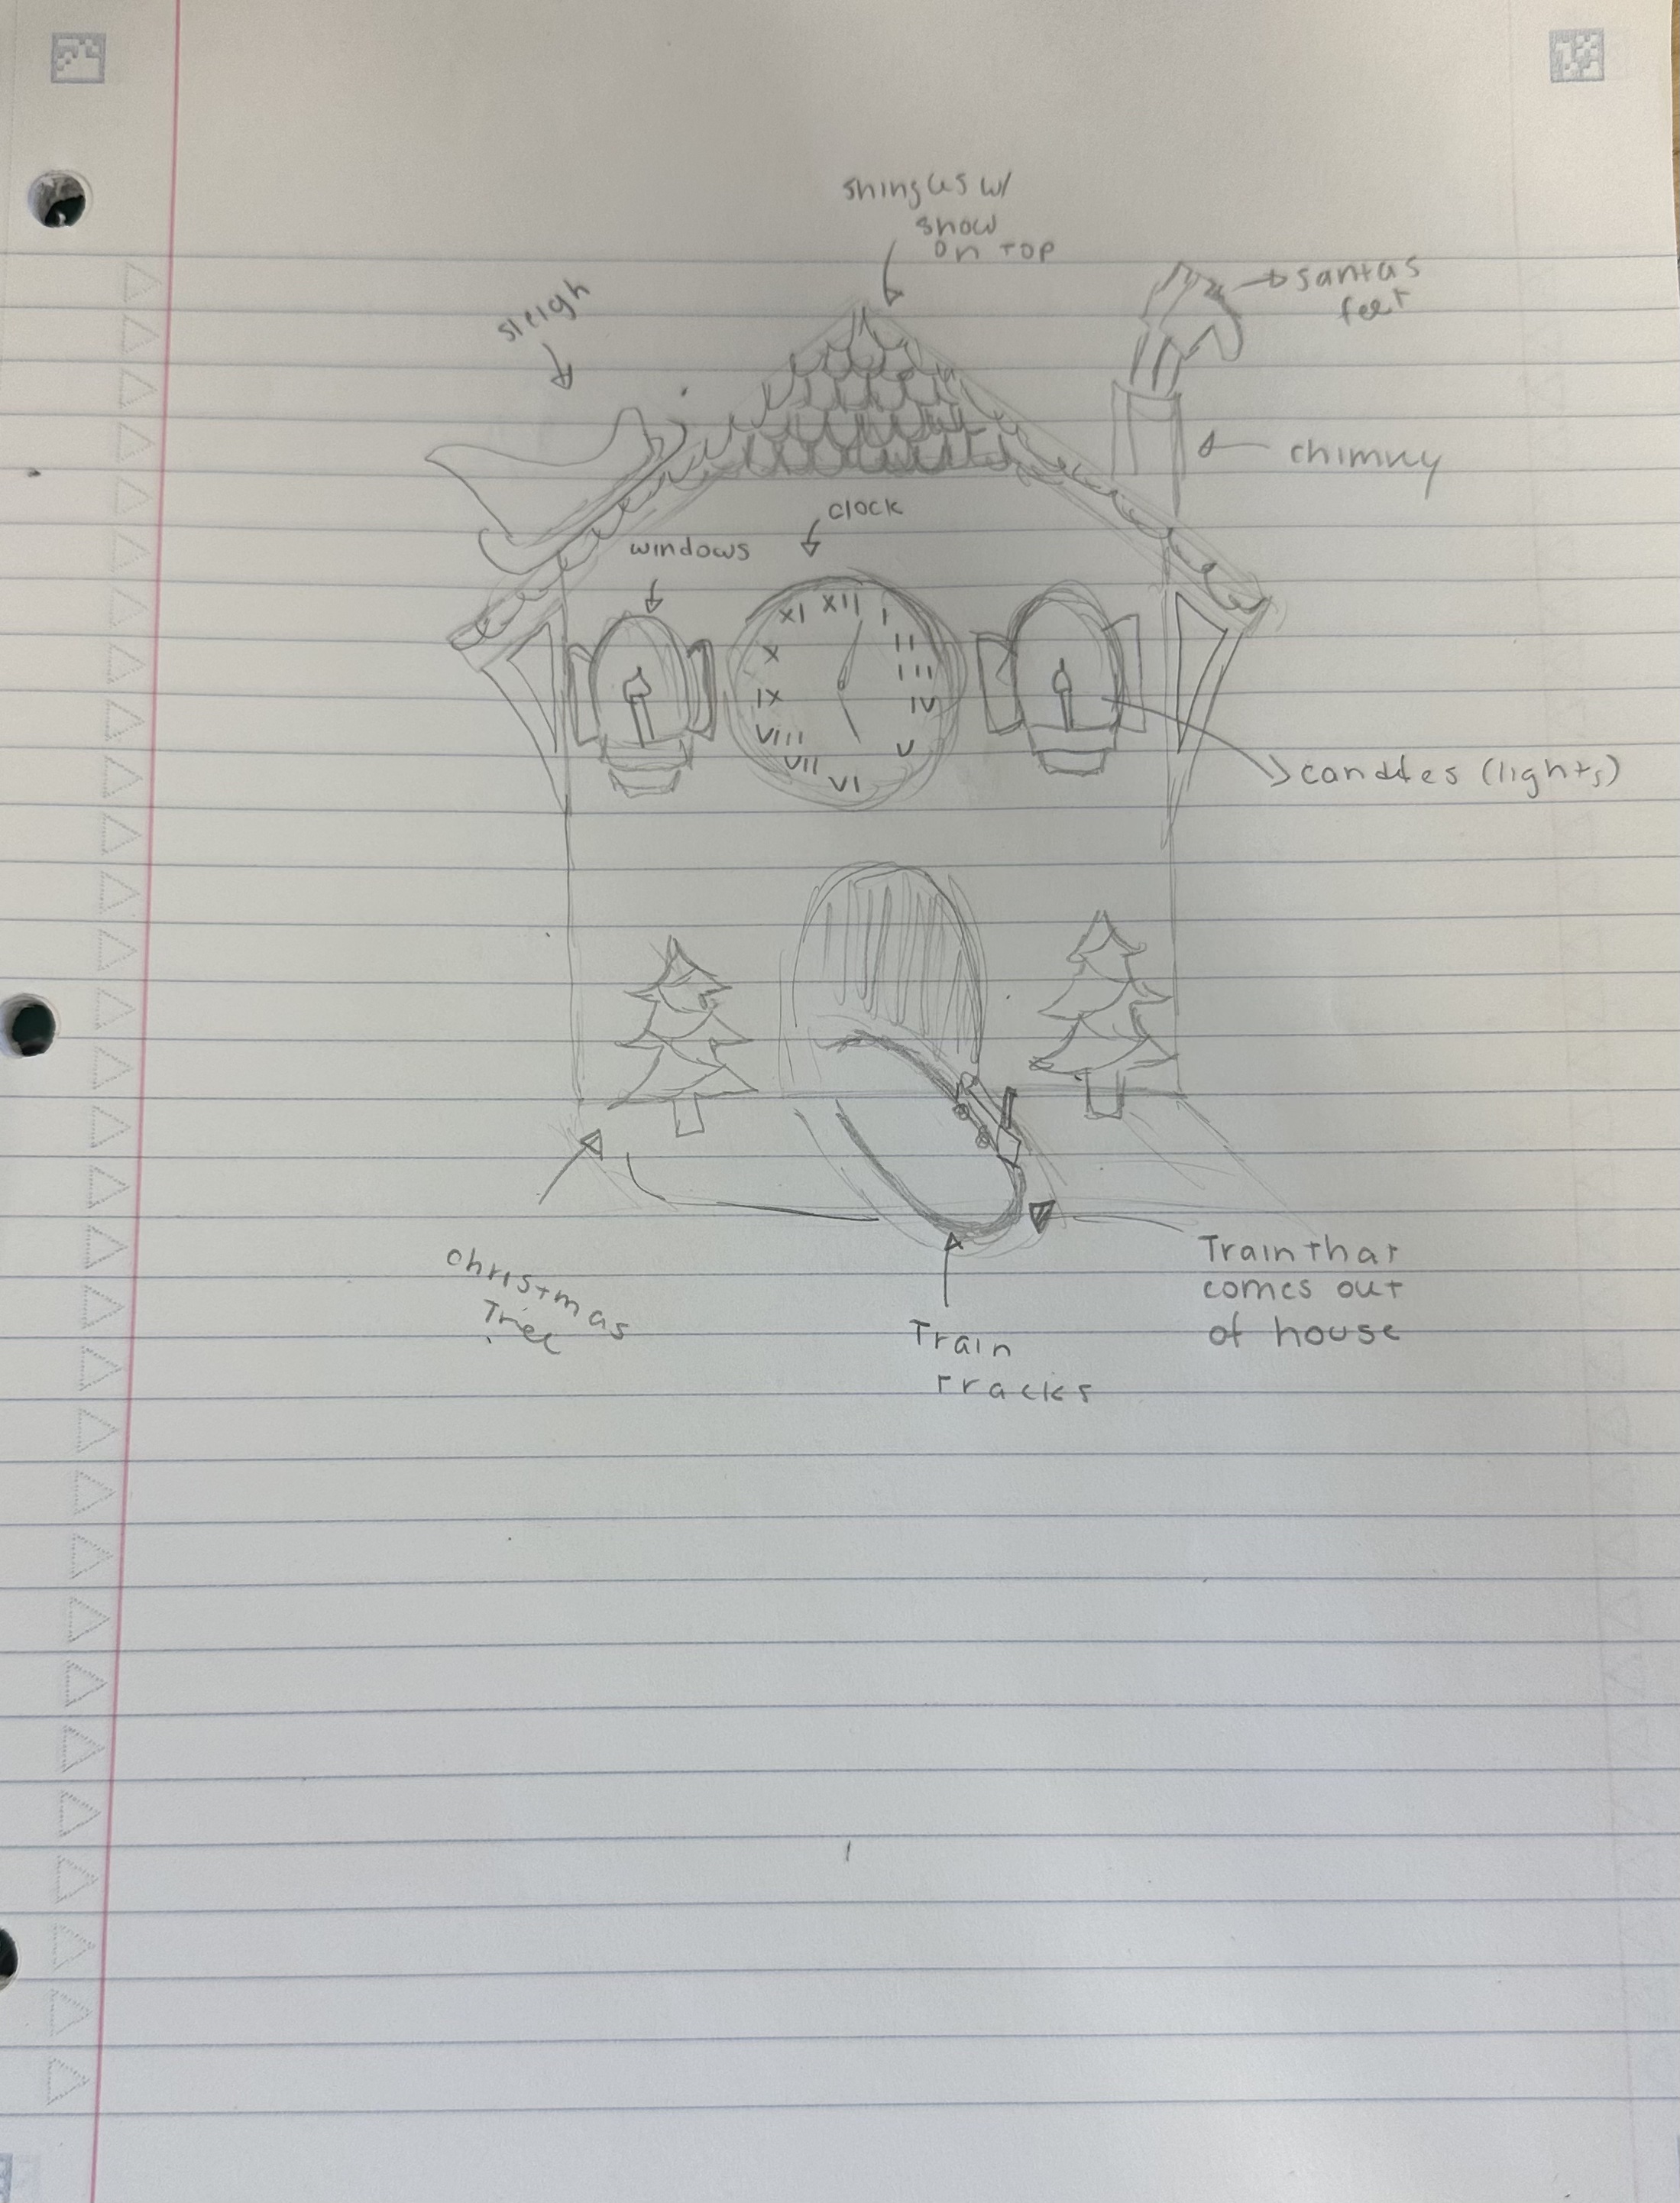 shingles w/
snow
on top
sleigh
santas
feet
chimny
clock
windows
XII
I
II
III
IV
V
VI
VII
VIII
IX
X
XI
candles (lights)
Christmas
Tree
Train
Tracks
Train that
comes out
of house